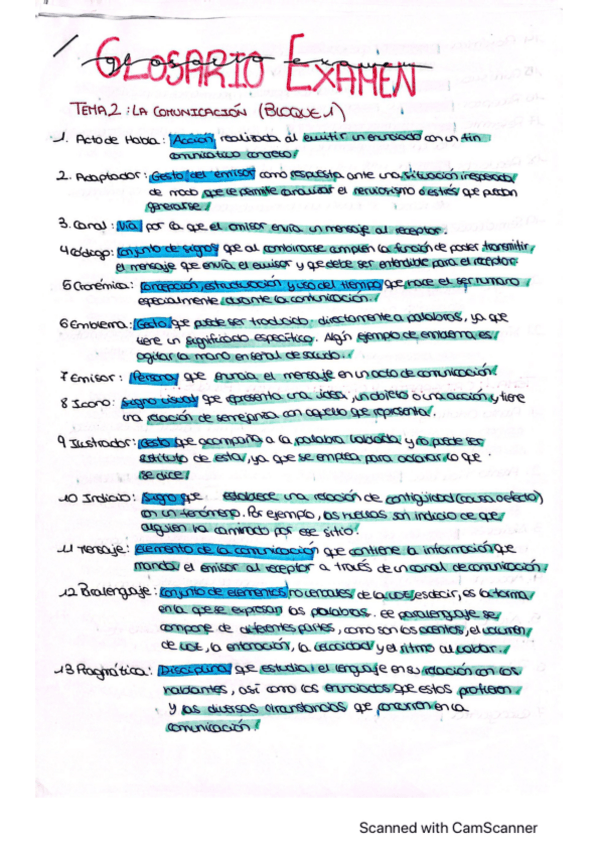 GLOSARIO EXAMEN
TEMA 2: LA COMUNICACIÓN (BLOQUE 1)
1. Acto de Habla: Acción realizada al emitir un enunciado con un fin
comunicativo concreto.
2. Adaptador: Gesto del emisor como respuesta ante una situación inesperada
de modo que le permite canalizar el nerviosismo o estrés que puedan
generarse.
3. Canal: Vía por la que el emisor envía un mensaje al receptor.
4 Código: conjunto de signos que al combinarse cumplen la función de poder transmitir
el mensaje que envía el emisor y que debe ser entendible para el receptor
5 Cronémica: concepción, estructuración y uso del tiempo que hace el ser humano
especialmente durante la comunicación.
6 Emblema: Gesto que puede ser traducido directamente a palabras, ya que
tiene un significado específico. Algún ejemplo de emblema es
agitar la mano en señal de saludo.
7 Emisor: Persona que envía el mensaje en un acto de comunicación
8 Icono: Signo visual que representa una idea, un objeto o una acción y tiene
una relación de semejanza con aquello que representa.
9 Ilustrador: Gesto que acompaña a la palabra hablada y no puede ser
sustituto de esta, ya que se emplea para aclarar lo que
se dice
10 Indicio: Signo que establece una relación de contigüidad (causa o efecto)
con un fenómeno. Por ejemplo, las huellas son indicio de que
alguien ha caminado por ese sitio.
11 Mensaje: elemento de la comunicación que contiene la información que
manda el emisor al receptor a través de un canal de comunicación.
12 Paralenguaje: conjunto de elementos no verbales de la voz, es decir, es la forma
en la que se expresan las palabras. El paralenguaje se
compone de diferentes partes, como son los acentos, el volumen
de voz, la entonación, la velocidad y el ritmo al hablar.
13 Pragmática: Disciplina que estudia el lenguaje en su relación con los
hablantes, así como los enunciados que estos profieren
y las diversas circunstancias que concurren en la
comunicación
Scanned with CamScanner